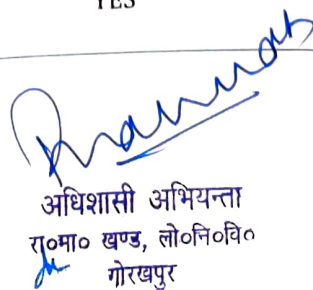 YES
अधिशासी अभियन्ता
रा०मा० खण्ड, लो०नि०वि०
गोरखपुर